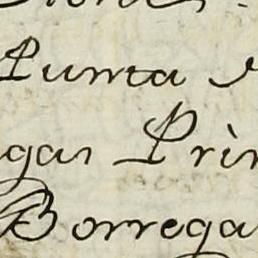 Punta
gas Prin
Borrega